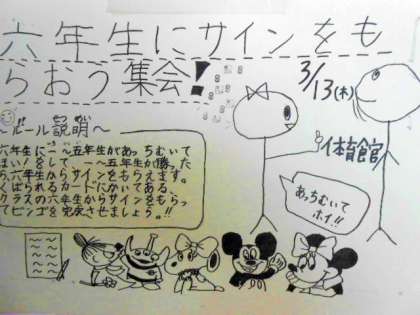 六年生にサインをも
らおう集会!
3/13(木)
体育館
~ルール説明~
六年生に一~五年生があっちむいて
ほい!をして、一~五年生が勝った
ら、六年生からサインをもらえます。
くばられるカードにかいてある、
クラスの六年生からサインをもらっ
てビンゴを完成させましょう!!
あっちむいて
ホイ!!